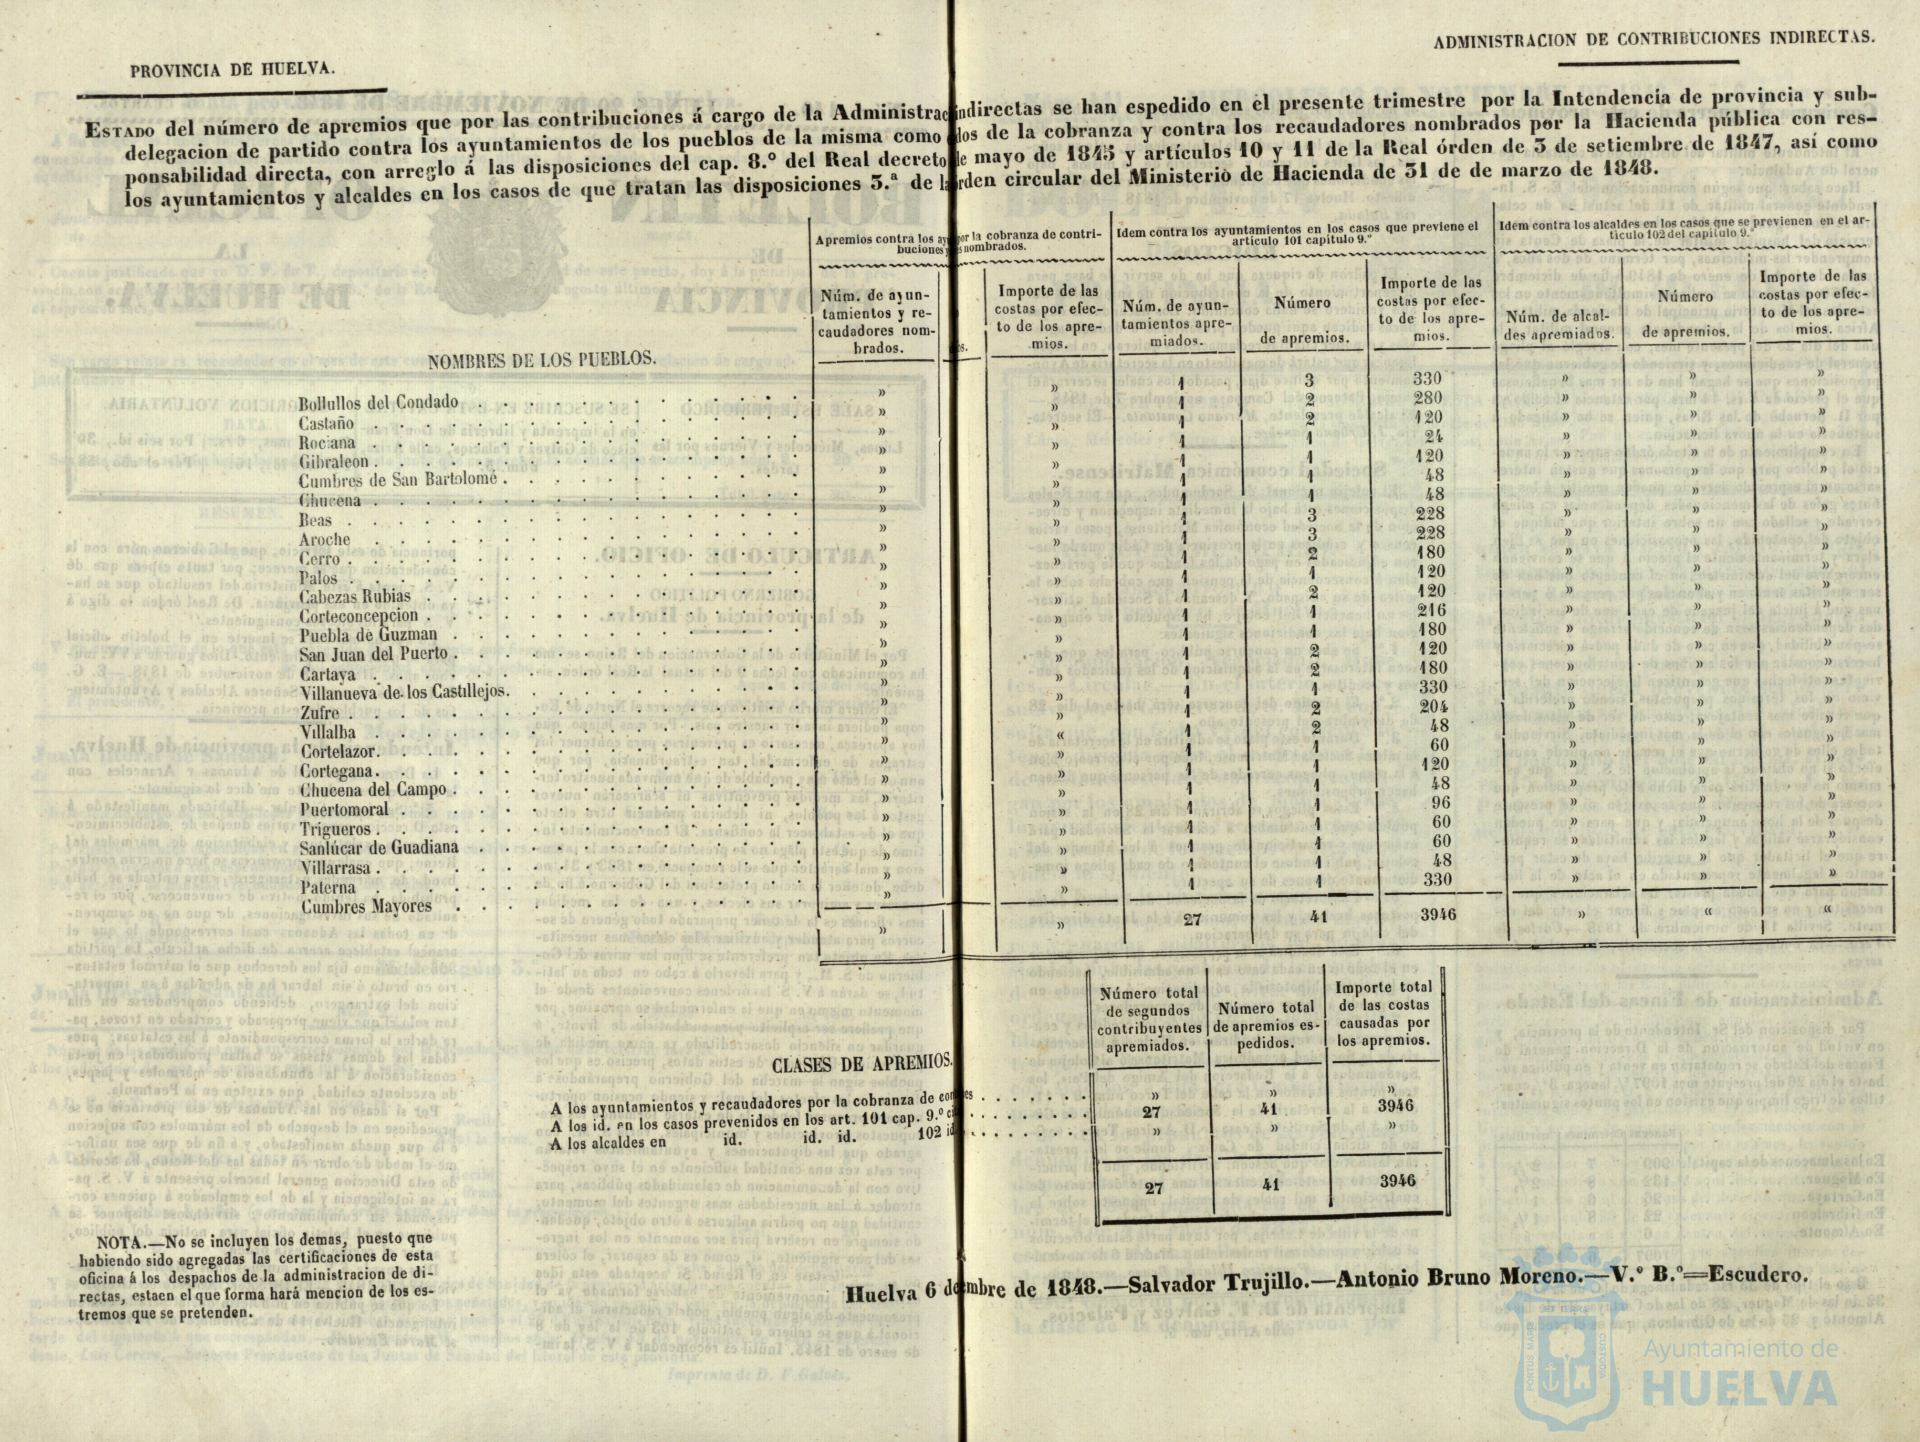 PROVINCIA DE HUELVA.
ADMINISTRACION DE CONTRIBUCIONES INDIRECTAS.
ESTADO del número de apremios que por las contribuciones á cargo de la Administrac indirectas se han espedido en el presente trimestre por la Intendencia de provincia y sub-
delegacion de partido contra los ayuntamientos de los pueblos de la misma como dos de la cobranza y contra los recaudadores nombrados por la Hacienda pública con res-
ponsabilidad directa, con arreglo á las disposiciones del cap. 8.º del Real decreto de mayo de 1845 y artículos 10 y 11 de la Real órden de 3 de setiembre de 1847, así como
los ayuntamientos y alcaldes en los casos de que tratan las disposiciones 5.ª de la orden circular del Ministerio de Hacienda de 31 de de marzo de 1848.
Apremios contra los ay por la cobranza de contri-
buciones y nombrados.
Idem contra los ayuntamientos en los casos que previene el
artículo 101 capítulo 9.º
Idem contra los alcaldes en los casos que se previenen en el ar-
tículo 102 del capítulo 9.º
NOMBRES DE LOS PUEBLOS.
Núm. de ayun-
tamientos y re-
caudadores nom-
brados.
os.
Importe de las
costas por efec-
to de los apre-
mios.
Núm. de ayun-
tamientos apre-
miados.
Número
de apremios.
Importe de las
costas por efec-
to de los apre-
mios.
Núm. de alcal-
des apremiados.
Número
de apremios.
Importe de las
costas por efec-
to de los apre-
mios.
Bollullos del Condado » » 1 3 330 » » »
Castaño » » 1 2 280 » » »
Rociana » » 1 2 120 » » »
Gibraleon » » 1 1 24 » » »
Cumbres de San Bartolomé » » 1 1 120 » » »
Chucena » » 1 1 48 » » »
Beas » » 1 1 48 » » »
Aroche » » 1 3 228 » » »
Cerro » » 1 3 228 » » »
Palos » » 1 2 180 » » »
Cabezas Rubias » » 1 1 120 » » »
Corteconcepcion » » 1 2 120 » » »
Puebla de Guzman » » 1 1 216 » » »
San Juan del Puerto » » 1 1 180 » » »
Cartaya » » 1 2 120 » » »
Villanueva de los Castillejos. » » 1 2 180 » » »
Zufre » » 1 1 330 » » »
Villalba » » 1 2 204 » » »
Cortelazor. » « 1 2 48 » » »
Cortegana. » » 1 1 60 » » »
Chucena del Campo » » 1 1 120 » » »
Puertomoral » » 1 1 48 » » »
Trigueros » » 1 1 96 » » »
Sanlúcar de Guadiana » » 1 1 60 » » »
Villarrasa » » 1 1 60 » » »
Paterna » » 1 1 48 » » »
Cumbres Mayores » » 1 1 330 » » »
» » 27 41 3946 » « «
CLASES DE APREMIOS.
Número total
de segundos
contribuyentes
apremiados.
Número total
de apremios es-
pedidos.
Importe total
de las costas
causadas por
los apremios.
A los ayuntamientos y recaudadores por la cobranza de con es » » »
A los id. en los casos prevenidos en los art. 101 cap. 9.º ci 27 41 3946
A los alcaldes en id. id. id. 102 id » » »
27 41 3946
NOTA.—No se incluyen los demas, puesto que
habiendo sido agregadas las certificaciones de esta
oficina á los despachos de la administracion de di-
rectas, estaen el que forma hará mencion de los es-
tremos que se pretenden.
Huelva 6 de mbre de 1848.—Salvador Trujillo.—Antonio Bruno Moreno.—V.º B.º=Escudero.
Ayuntamiento de
HUELVA